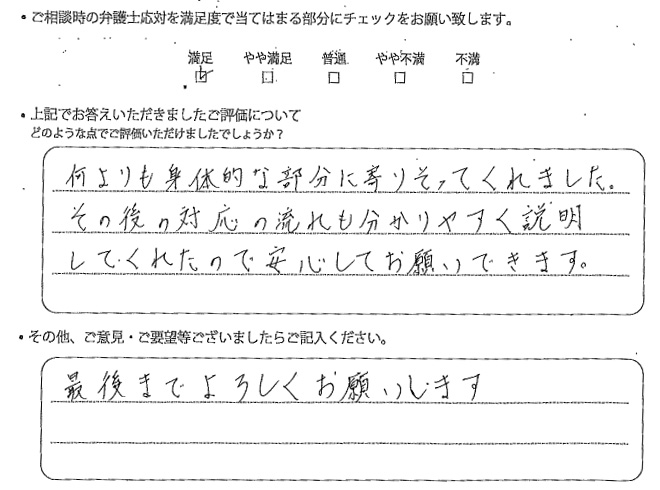 ・ご相談時の弁護士応対を満足度で当てはまる部分にチェックをお願い致します。
満足 やや満足 普通 やや不満 不満
☑ □ □ □ □
・上記でお答えいただきましたご評価について
どのような点でご評価いただけましたでしょうか？
何よりも身体的な部分に寄りそってくれました。
その後の対応の流れも分かりやすく説明
してくれたので安心してお願いできます。
・その他、ご意見・ご要望等ございましたらご記入ください。
最後までよろしくお願いします